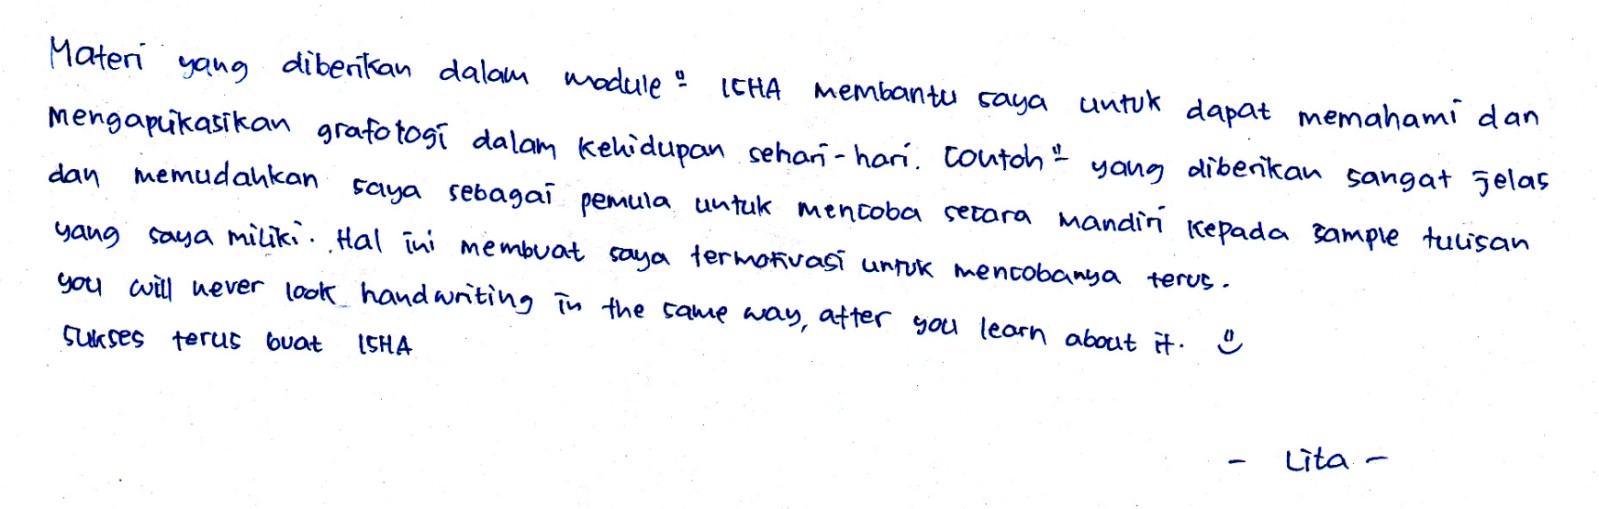 Materi yang diberikan dalam module" ISHA membantu saya untuk dapat memahami dan
mengaplikasikan grafologi dalam kehidupan sehari-hari. Contoh" yang diberikan sangat jelas
dan memudahkan saya sebagai pemula untuk mencoba secara mandiri kepada sample tulisan
yang saya miliki. Hal ini membuat saya termotivasi untuk mencobanya terus.
you will never look handwriting in the same way, after you learn about it. :)
Sukses terus buat ISHA
- Lita -